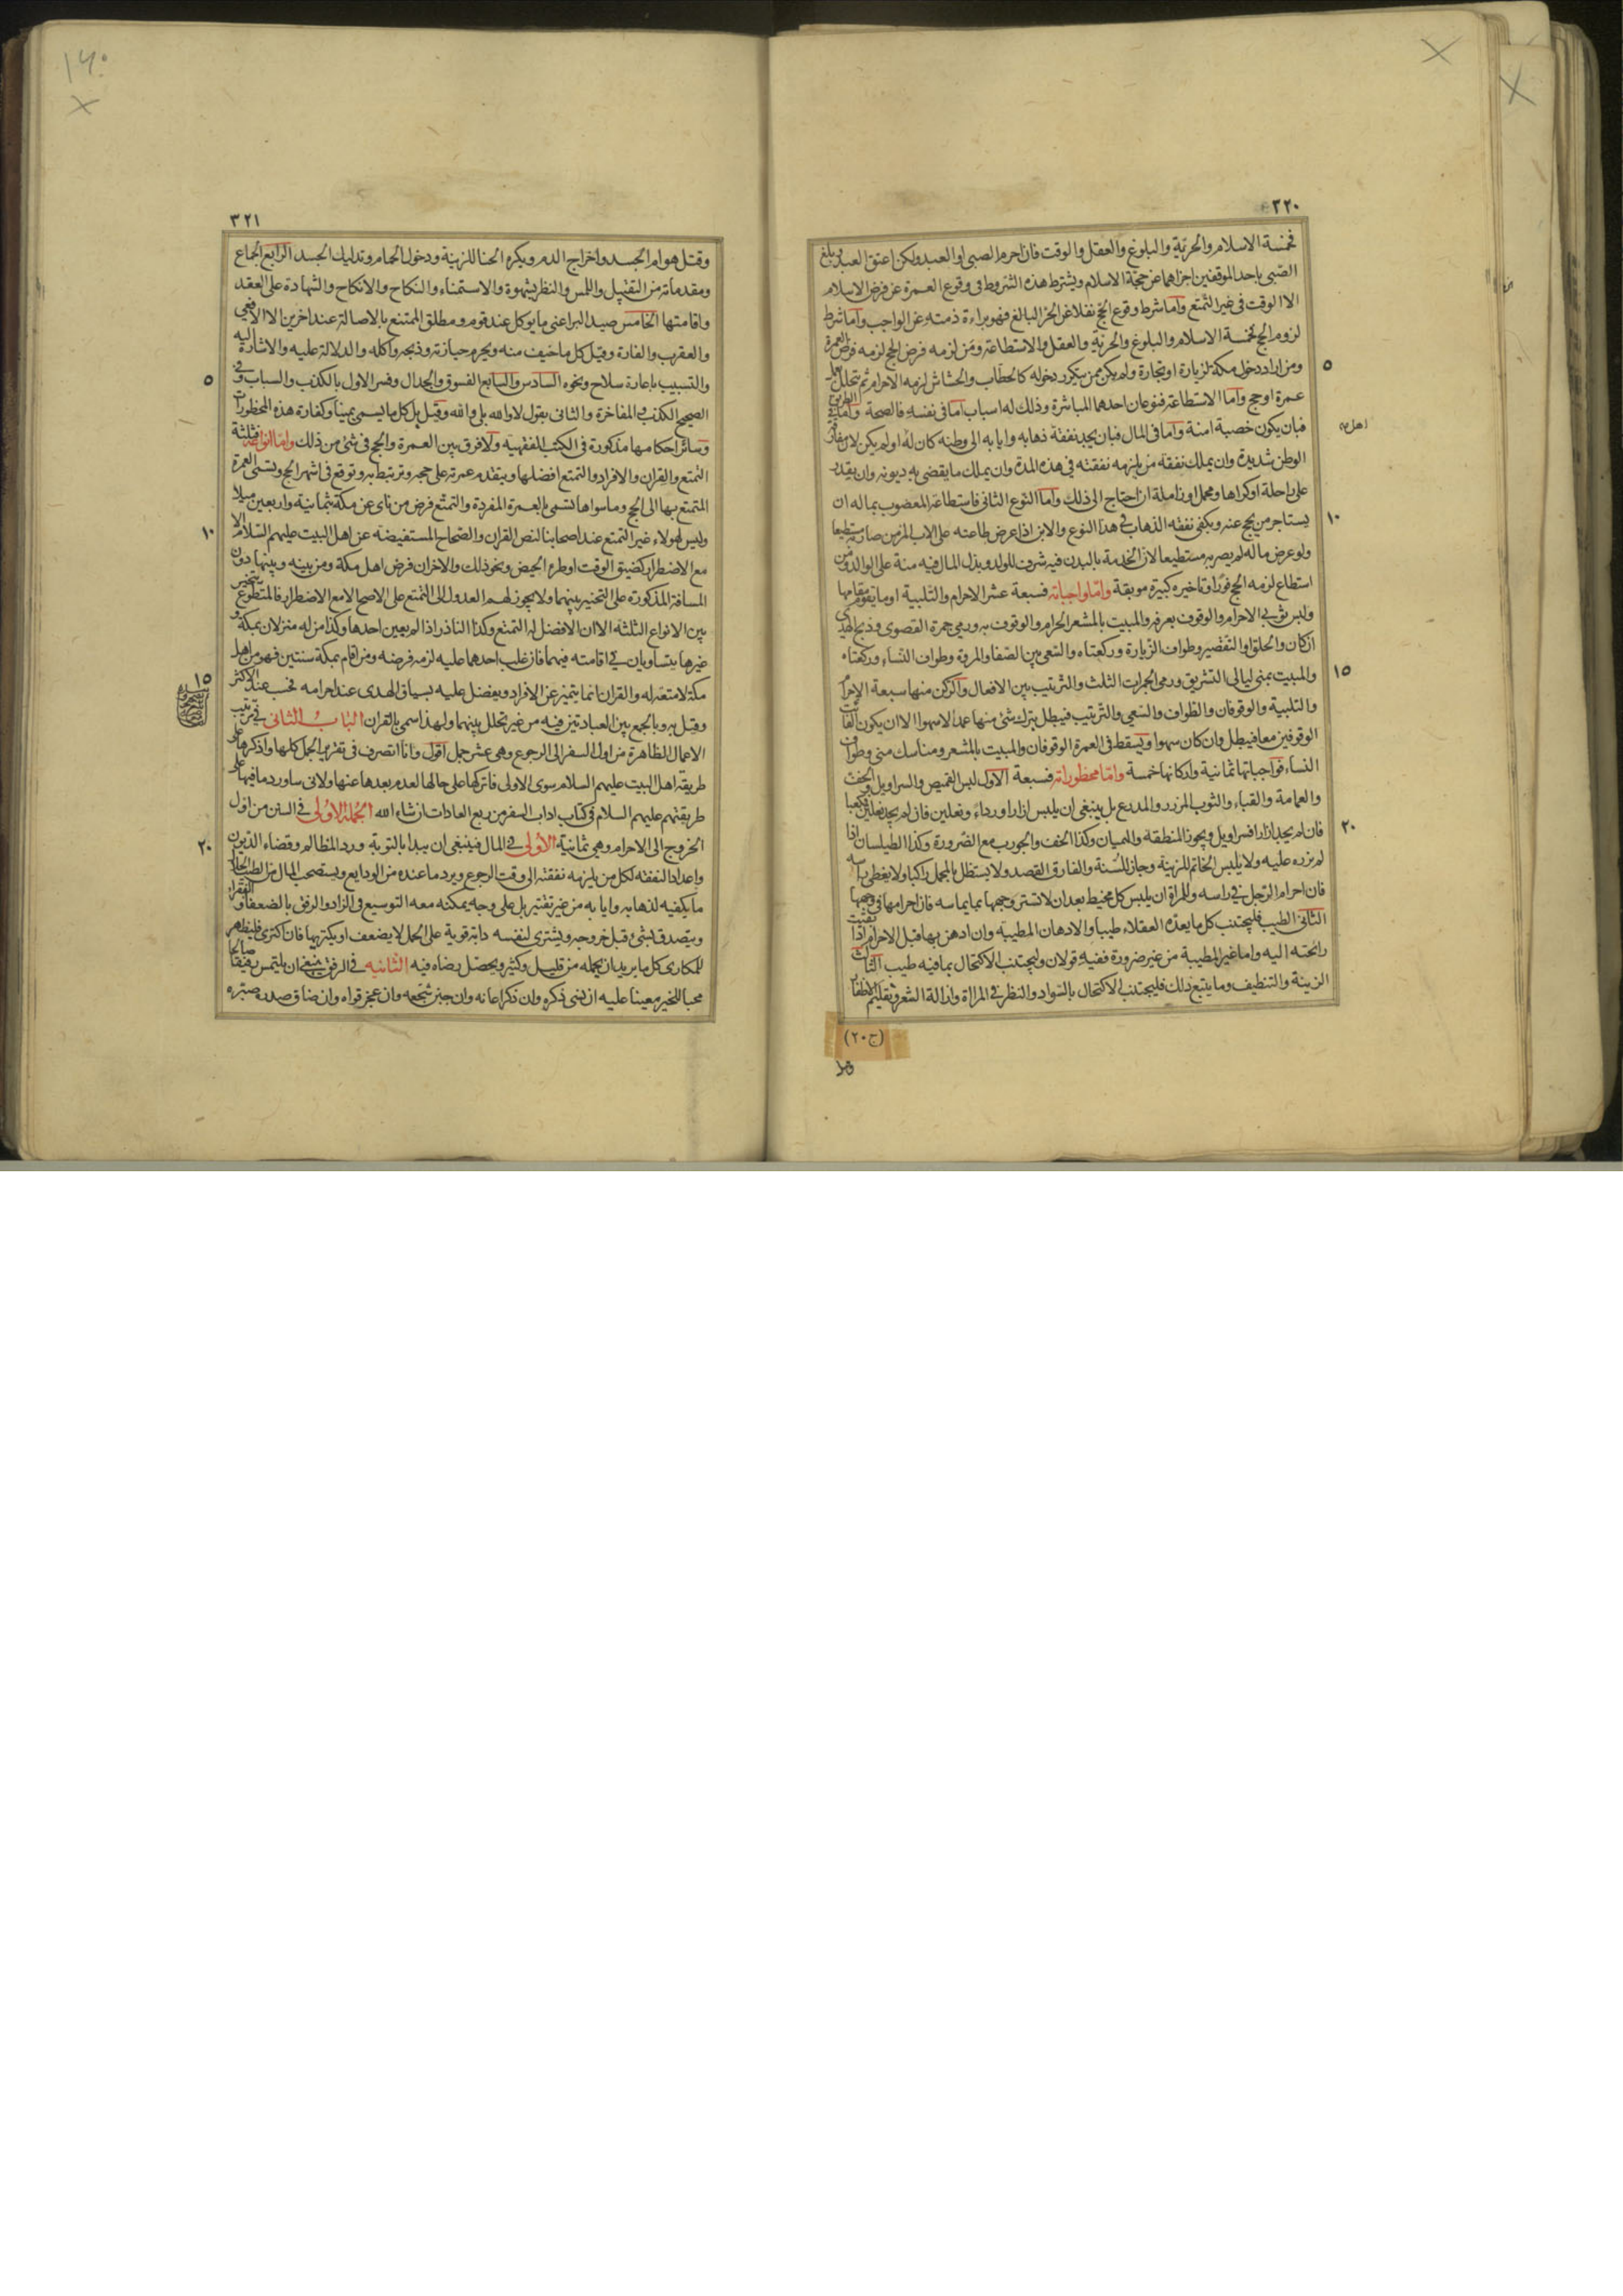 ٣٢٠
فخمسة الاسلام والحرية والبلوغ والعقل والوقت فان احرم الصبى او العبد ولكن اعتق العبد وبلغ
الصبى باحد الموقفين اجزاهما عن حجة الاسلام ويشترط هذه الشروط فى وقوع العمرة عن فرض الاسلام
الا الوقت فى غير التمتع واما شرط وقوع الحج نفلا عن الحر البالغ فهو براءة ذمته عن الواجب واما شرط
لزوم الحج فخمسة الاسلام والبلوغ والحرية والعقل والاستطاعة ومن لزمه فرض الحج لزمه فرض العمرة
ومن اراد دخول مكة لزيارة او تجارة ولم يكن ممن يتكرر دخوله كالحطاب والحشاش لزمه الاحرام ثم يتحلل
٥
عمرة او حج واما الاستطاعة فنوعان احدهما المباشرة وذلك له اسباب اما فى نفسه فالصحة واما فى الطريق
فبان يكون خصبة امنة واما فى المال فبان يجد نفقة ذهابه وايابه الى وطنه كان له او لم يكن لان مفارقة
اهل
الوطن شديدة وان يملك نفقة من يلزمه نفقته فى هذه المدة وان يملك ما يقضى به ديونه وان يقدر
على راحلة او كراها ومحمل او زاملة ان احتاج الى ذلك واما النوع الثانى فاستطاعة المعضوب بماله ان
يستاجر من يحج عنه ويكفى نفقة الذهاب فى هذا النوع والابن اذا عرض طاعته على الاب الزمن صار به مستطيعا
١٠
ولو عرض ماله لم يصر به مستطيعا لان الخدمة بالبدن فيه شرف للولد وبذل المال فيه منة على الوالد ومن
استطاع لزمه الحج فورا وتاخيره كبيرة موبقة واما واجباته فسبعة عشر الاحرام والتلبية او ما يقوم مقامها
ولبس ثوبى الاحرام والوقوف بعرفه والمبيت بالمشعر الحرام والوقوف به ورمى جمرة القصوى وذبح الهدى
ان كان والحلق او التقصير وطواف الزيارة وركعتاه والسعى بين الصفا والمروة وطواف النساء وركعتاه
والمبيت بمنى ليالى التشريق ورمى الجمرات الثلث والترتيب بين الافعال والركن منها سبعة الاحرام
١٥
والتلبية والوقوفان والطواف والسعى والترتيب فيبطل بترك شئ منها عمدا لا سهوا الا ان يكون الفائت
الوقوفين معا فيبطل وان كان سهوا ويسقط فى العمرة الوقوفان والمبيت بالمشعر ومناسك منى وطواف
النساء فواجباتها ثمانية واركانها خمسة واما محظوراته فسبعة الاول لبس القميص والسراويل والخف
والعمامة والقباء والثوب المزرر والمدرع بل ينبغى ان يلبس ازارا ورداء ونعلين فان لم يجد نعلين
فان لم يجد ازارا فسراويل ويجوز المنطقة والهميان وكذا الخف والجورب مع الضرورة وكذا الطيلسان اذا
٢٠
لم يزره عليه ولا يلبس الخاتم للزينة وجاز للسنة والفارق القصد ولا يستظل بالمحمل راكبا ولا يغطى راسه
فان احرام الرجل فى راسه وللمراة ان يلبس كل مخيط بعد ان لا تستر وجهها بما يماسه فان احرامها فى وجهها
الثانى الطيب فليجتنب كل ما يعده العقلاء طيبا والادهان المطيبة وان ادهن بها قبل الاحرام اذا بقيت
رائحته اليه واما غير المطيبة من غير ضرورة ففيه قولان وليجتنب الاكتحال بما فيه طيب الثالث
الزينة والتنظيف وما يتبع ذلك فليجتنب الاكتحال بالسواد والنظر فى المراة وازالة الشعر وتقليم الاظفار
(ج ٢٠)
وقتل
٣٢١
وقتل هوام الجسد واخراج الدم ويكره الحنا للزينة ودخول الحمام وتدليك الجسد الرابع الجماع
ومقدماته من التقبيل واللمس والنظر بشهوة والاستمناء والنكاح والانكاح والشهادة على العقد
واقامتها الخامس صيد البر اعنى ما يوكل عند قوم ومطلق الممتنع بالاصالة عند اخرين الا الافعى
والعقرب والفارة وقيل كل ما خيف منه ويحرم حيازته وذبحه واكله والدلالة عليه والاشارة اليه
والتسبيب باعارة سلاح ونحوه السادس والسابع الفسوق والجدال وفسر الاول بالكذب والسباب وفى
٥
الصحيح الكذب والمفاخرة والثانى بقول لا والله بلى والله وقيل بل كل ما يسمى يمينا وكفارة هذه المحظورات
وسائر احكامها مذكورة فى الكتب الفقهية ولا فرق بين العمرة والحج فى شئ من ذلك واما انواعه فثلثة
التمتع والقران والافراد والتمتع افضلها ويتقدم عمرته على حجه وترتبط به وتوقع فى اشهر الحج وتسمى العمرة
المتمتع بها الى الحج وما سواها تسمى بالعمرة المفردة والتمتع فرض من ناى عن مكة بثمانية واربعين ميلا
وليس لهولاء غير التمتع عند اصحابنا لنص القران والصحاح المستفيضة عن اهل البيت عليهم السلام الا
١٠
مع الاضطرار كضيق الوقت او طرء الحيض ونحو ذلك والاخران فرض اهل مكة ومن بينه وبينها دون
المسافة المذكورة على التخيير بينهما ولا يجوز لهم العدول الى التمتع على الاصح الا مع الاضطرار فالمتطوع يتخير
بين الانواع الثلثة الا ان الافضل له التمتع وكذا الناذر اذا لم يعين احدها وكذا من له منزلان بمكة و
غيرها يتساويان فى اقامته فيهما فان غلب احدهما عليه لزمه فرضه ومن اقام بمكة سنتين فهو من اهل
مكة لا متعة له والقران انما يتميز عن الافراد ويفضل عليه بسياق الهدى عند احرامه فحسب عند الاكثر
١٥
وقيل به وبالجمع بين العبادتين فيه من غير تحلل بينهما ولهذا سمى بالقران الباب الثانى فى ترتيب
الاعمال الظاهرة من اول السفر الى الرجوع وهى عشر جمل اقول وانا اتصرف فى تقرير الجمل كلها واذكرها على
طريقة اهل البيت عليهم السلام سوى الاولى فاتركها على حالها لعدم بعدها عنها ولانى ساورد ما فيها على
طريقتهم عليهم السلام فى كتاب اداب السفر من ربع العادات ان شاء الله الجملة الاولى فى السنن من اول
الخروج الى الاحرام وهى ثمانية الاولى فى المال فينبغى ان يبدا بالتوبة ورد المظالم وقضاء الديون
٢٠
واعداد النفقة لكل من يلزمه نفقته الى وقت الرجوع ويرد ما عنده من الودايع ويستصحب المال من الطيب الحلال
ما يكفيه لذهابه وايابه من غير تقتير بل على وجه يمكنه معه التوسيع فى الزاد والرفق بالضعفاء والفقراء
ويتصدق بشئ قبل خروجه ويشترى لنفسه دابة قوية على الحمل لا يضعف او يكتريها فان اكترى فليظهر
للمكارى كل ما يريد ان يحمله من قليل وكثير ويحصل رضاه فيه الثانية فى الرفيق ينبغى ان يلتمس رفيقا صالحا
محبا للخير معينا عليه ان نسى ذكره وان ذكر اعانه وان جبن شجعه وان عجز قواه وان ضاق صدره صبره